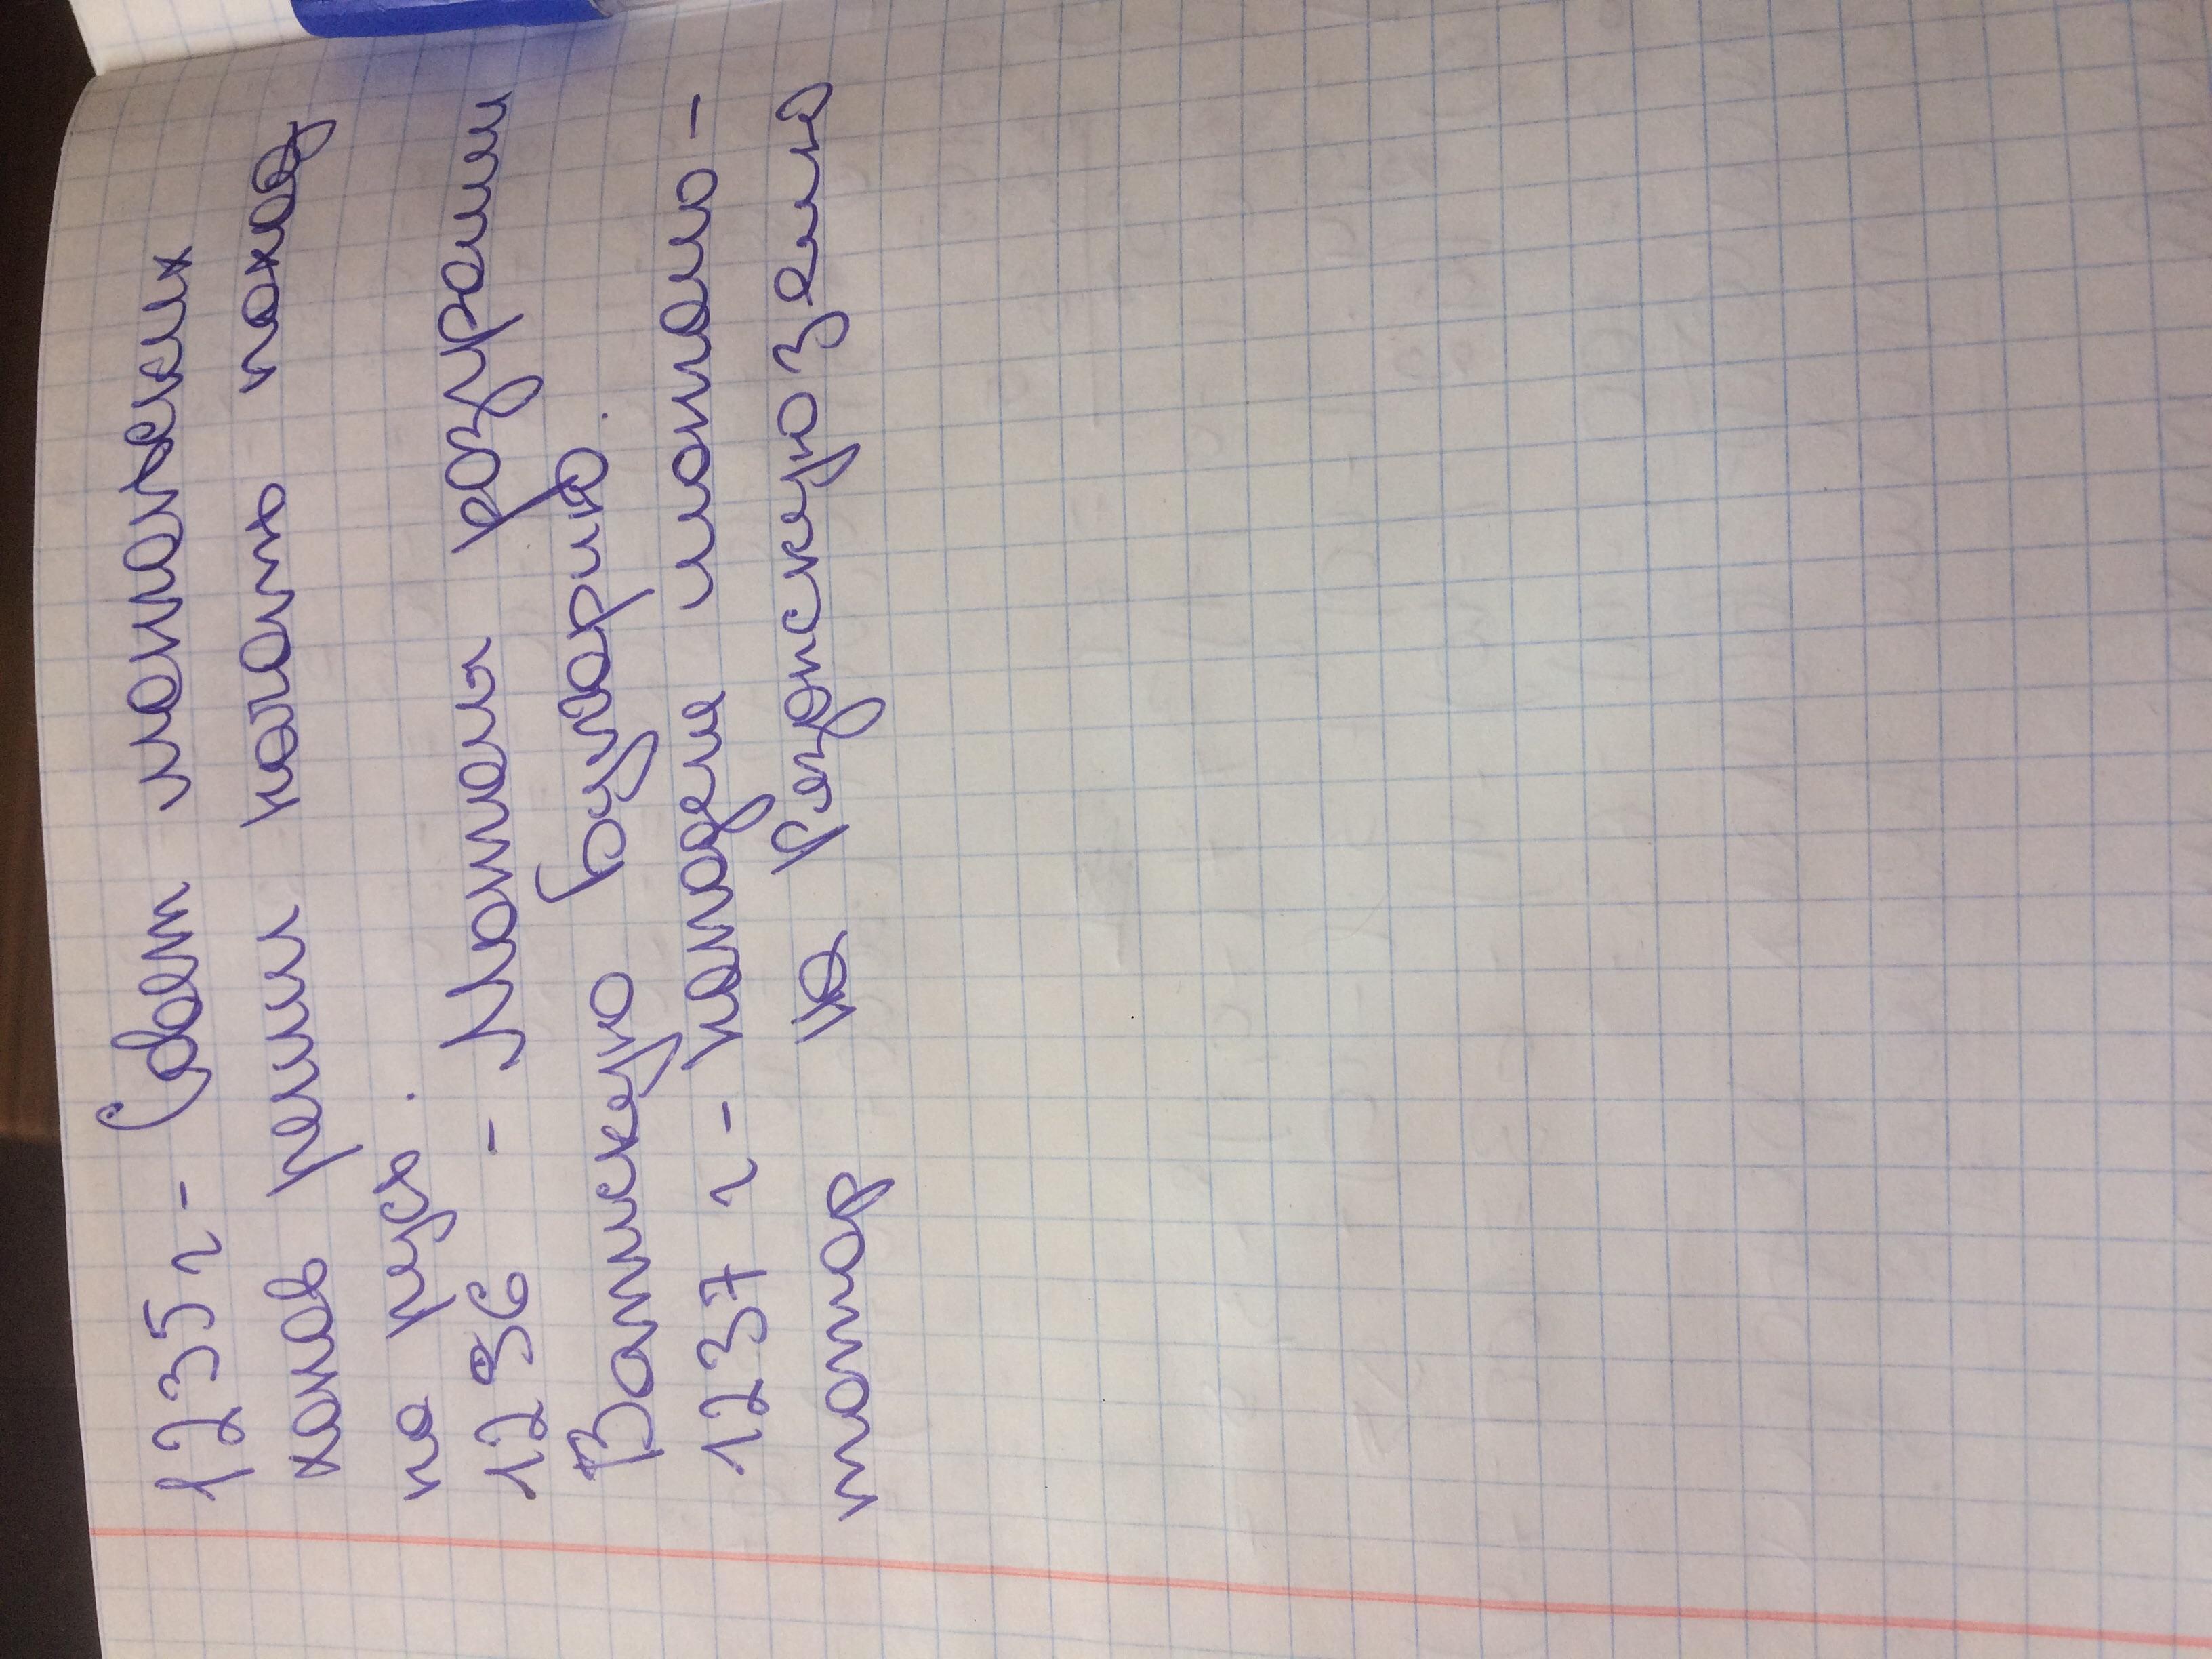 1235 г - Совет монгольских
ханов решил начать поход
на русь.
1236 - Монголы разграбили
Волжскую булгарию.
1237 г - нападение монголо-
татар на Резанскую землю